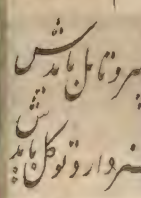 بر و تامل بایدش
هنر دارد توکل بایدش